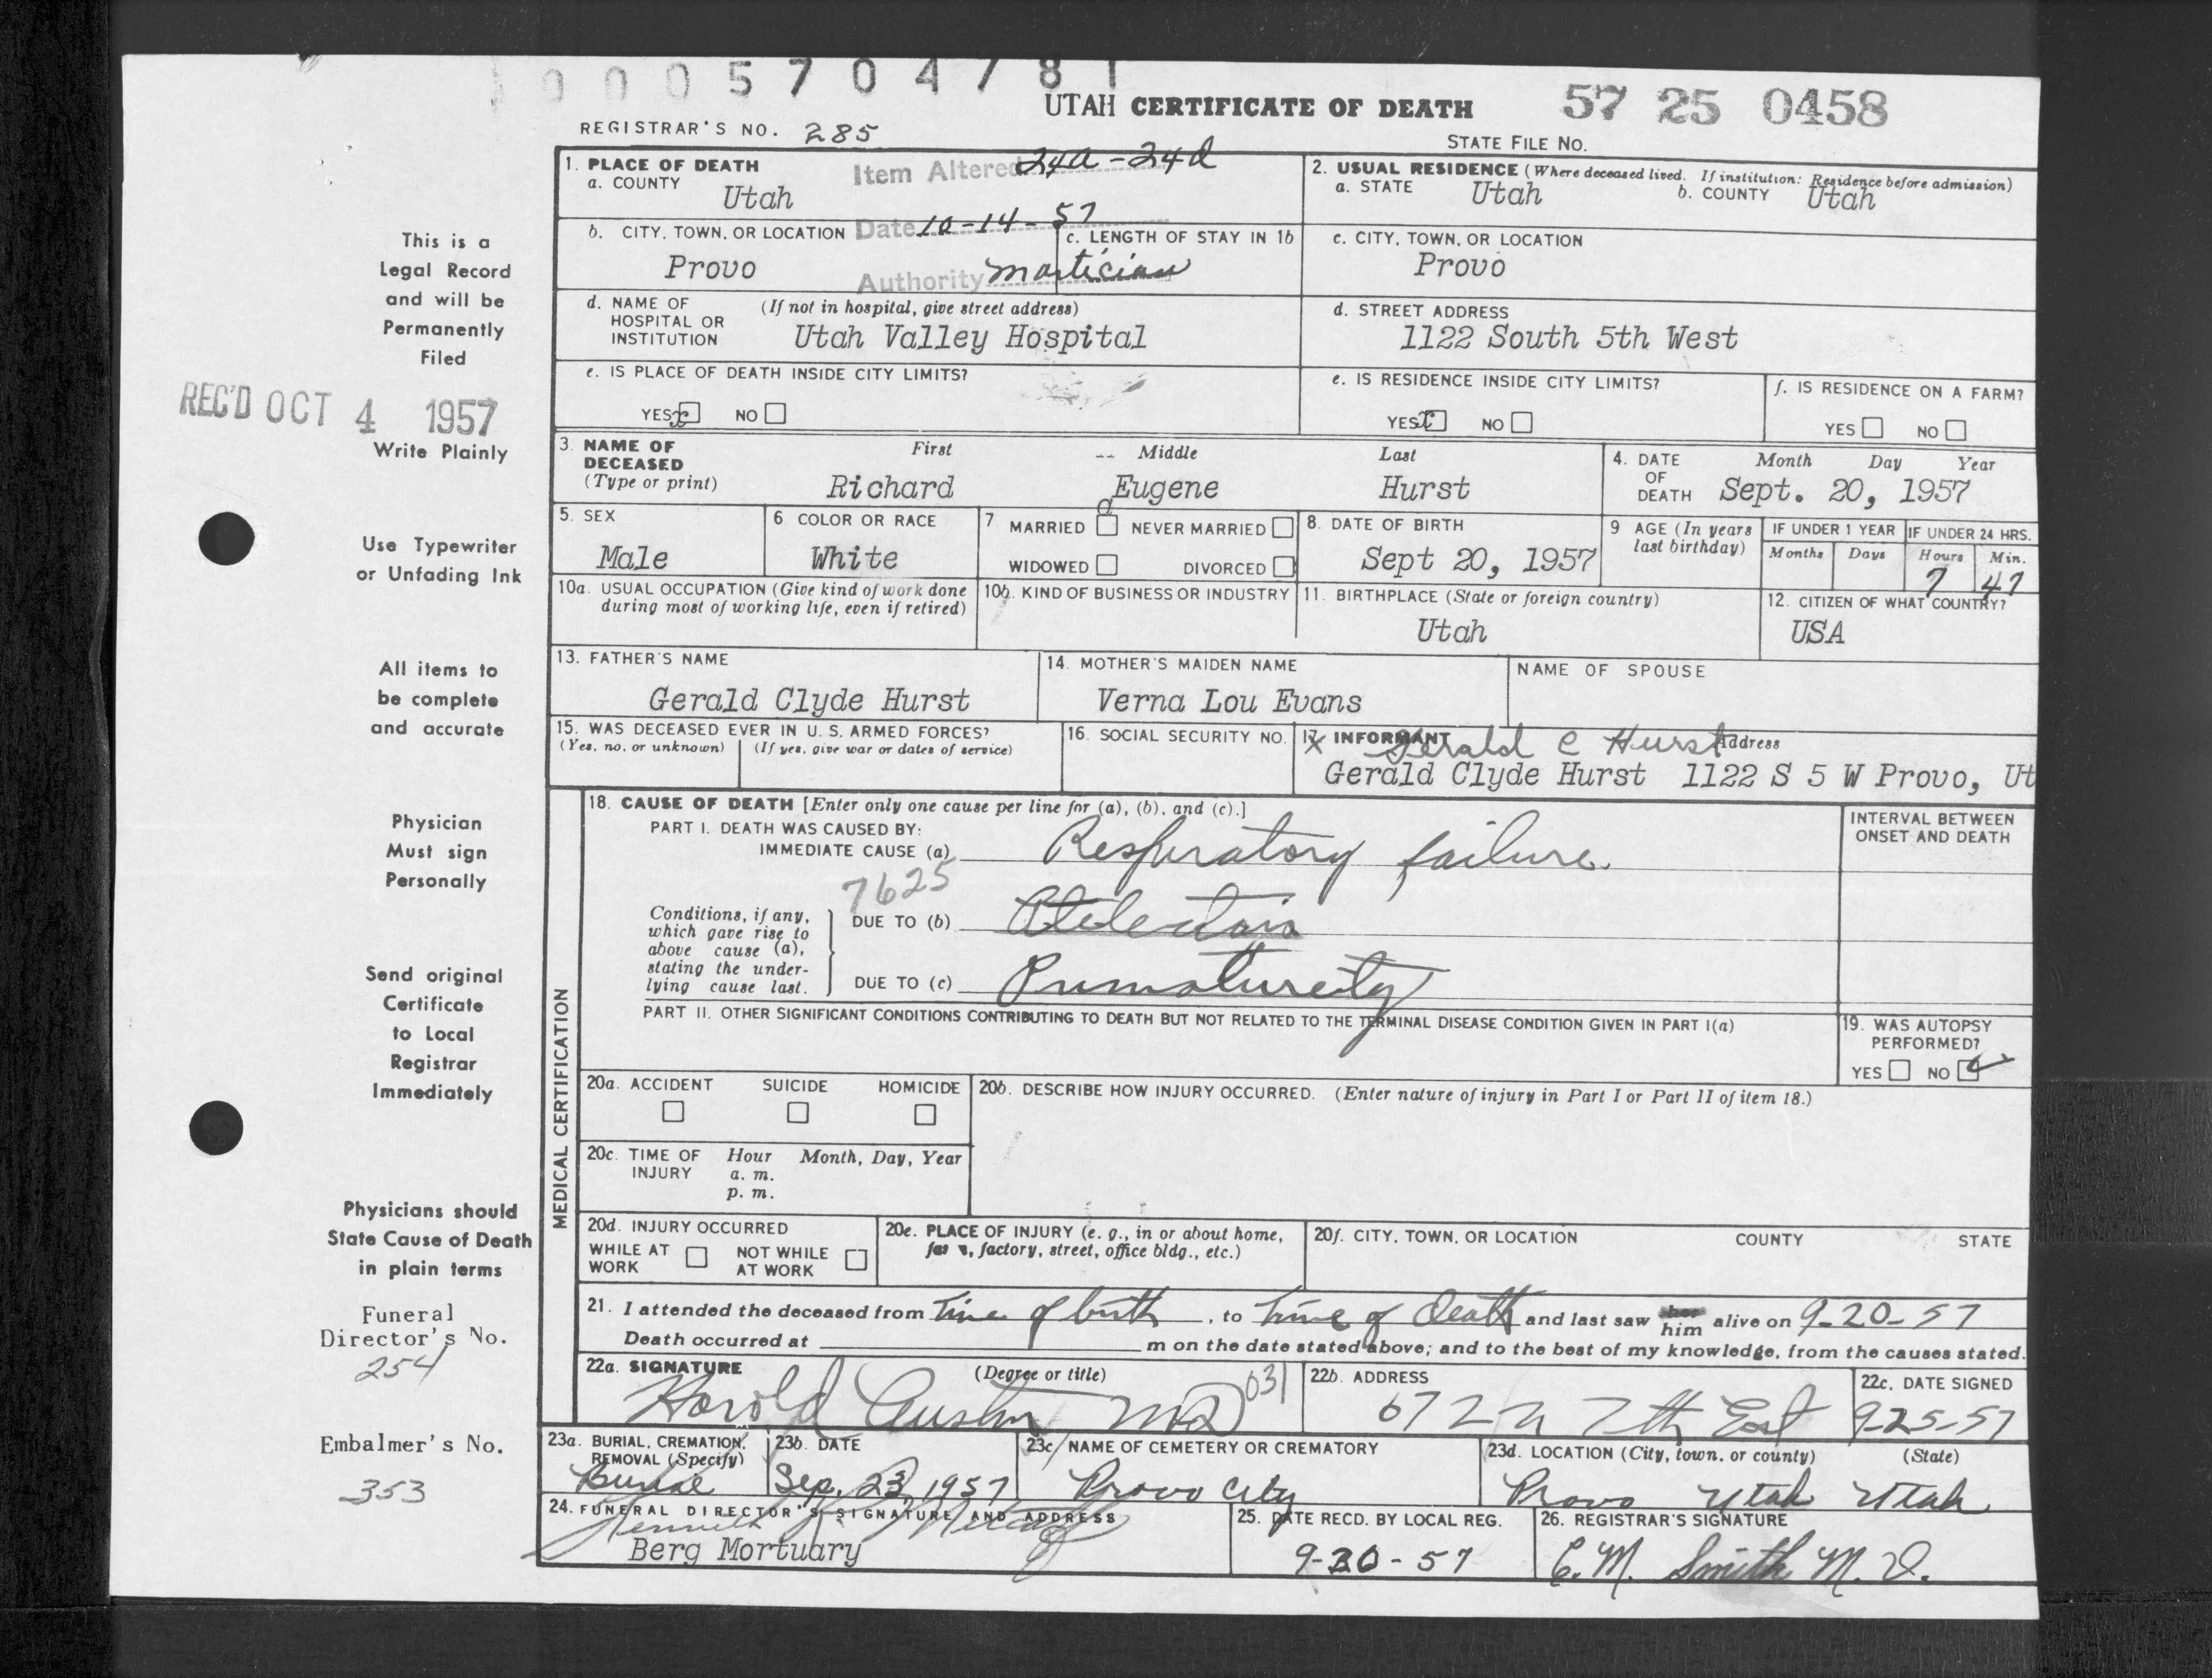 0 0 0 5 7 0 4 7 8 1
UTAH CERTIFICATE OF DEATH
57 25 0458
REGISTRAR'S NO. 285
STATE FILE NO.
Item Altered 24a-24d
Date 10-14-57
Authority mortician
1. PLACE OF DEATH
a. COUNTY
Utah
2. USUAL RESIDENCE (Where deceased lived. If institution: Residence before admission)
a. STATE Utah b. COUNTY Utah
b. CITY, TOWN, OR LOCATION
Provo
c. LENGTH OF STAY IN 1b
c. CITY, TOWN, OR LOCATION
Provo
d. NAME OF HOSPITAL OR INSTITUTION
(If not in hospital, give street address)
Utah Valley Hospital
d. STREET ADDRESS
1122 South 5th West
e. IS PLACE OF DEATH INSIDE CITY LIMITS?
YES x NO
e. IS RESIDENCE INSIDE CITY LIMITS?
YES x NO
f. IS RESIDENCE ON A FARM?
YES NO
3. NAME OF DECEASED (Type or print)
First -- Middle Last
Richard Eugene Hurst
4. DATE OF DEATH
Month Day Year
Sept. 20, 1957
5. SEX
Male
6. COLOR OR RACE
White
7 MARRIED NEVER MARRIED
WIDOWED DIVORCED
8. DATE OF BIRTH
Sept 20, 1957
9 AGE (In years last birthday)
IF UNDER 1 YEAR IF UNDER 24 HRS.
Months Days Hours Min.
7 47
10a. USUAL OCCUPATION (Give kind of work done during most of working life, even if retired)
10b. KIND OF BUSINESS OR INDUSTRY
11. BIRTHPLACE (State or foreign country)
Utah
12. CITIZEN OF WHAT COUNTRY?
USA
13. FATHER'S NAME
Gerald Clyde Hurst
14. MOTHER'S MAIDEN NAME
Verna Lou Evans
NAME OF SPOUSE
15. WAS DECEASED EVER IN U.S. ARMED FORCES?
(Yes, no, or unknown) (If yes, give war or dates of service)
16. SOCIAL SECURITY NO.
17. INFORMANT Address
x Gerald C Hurst
Gerald Clyde Hurst 1122 S 5 W Provo, Ut
MEDICAL CERTIFICATION
18. CAUSE OF DEATH [Enter only one cause per line for (a), (b), and (c).]
PART I. DEATH WAS CAUSED BY:
IMMEDIATE CAUSE (a) Respiratory failure
INTERVAL BETWEEN ONSET AND DEATH
7625
Conditions, if any, which gave rise to above cause (a), stating the underlying cause last.
DUE TO (b) Atelectasis
DUE TO (c) Prematurity
PART II. OTHER SIGNIFICANT CONDITIONS CONTRIBUTING TO DEATH BUT NOT RELATED TO THE TERMINAL DISEASE CONDITION GIVEN IN PART I(a)
19. WAS AUTOPSY PERFORMED?
YES NO ✓
20a. ACCIDENT SUICIDE HOMICIDE
20b. DESCRIBE HOW INJURY OCCURRED. (Enter nature of injury in Part I or Part II of item 18.)
20c. TIME OF INJURY
Hour Month, Day, Year
a. m.
p. m.
20d. INJURY OCCURRED
WHILE AT WORK NOT WHILE AT WORK
20e. PLACE OF INJURY (e. g., in or about home, farm, factory, street, office bldg., etc.)
20f. CITY, TOWN, OR LOCATION COUNTY STATE
21. I attended the deceased from Time of birth, to time of death and last saw him alive on 9-20-57
Death occurred at m on the date stated above; and to the best of my knowledge, from the causes stated.
22a. SIGNATURE (Degree or title)
Harold Austin MD 031
22b. ADDRESS
672 N 7th East
22c. DATE SIGNED
9-25-57
23a. BURIAL, CREMATION, REMOVAL (Specify)
Burial
23b. DATE
Sep. 23, 1957
23c. NAME OF CEMETERY OR CREMATORY
Provo City
23d. LOCATION (City, town, or county) (State)
Provo Utah Utah
24. FUNERAL DIRECTOR'S SIGNATURE AND ADDRESS
Kenneth
Berg Mortuary
25. DATE RECD. BY LOCAL REG.
9-30-57
26. REGISTRAR'S SIGNATURE
C.M. Smith M.D.
This is a
Legal Record
and will be
Permanently
Filed
REC'D OCT 4 1957
Write Plainly
Use Typewriter
or Unfading Ink
All items to
be complete
and accurate
Physician
Must sign
Personally
Send original
Certificate
to Local
Registrar
Immediately
Physicians should
State Cause of Death
in plain terms
Funeral
Director's No.
254
Embalmer's No.
353